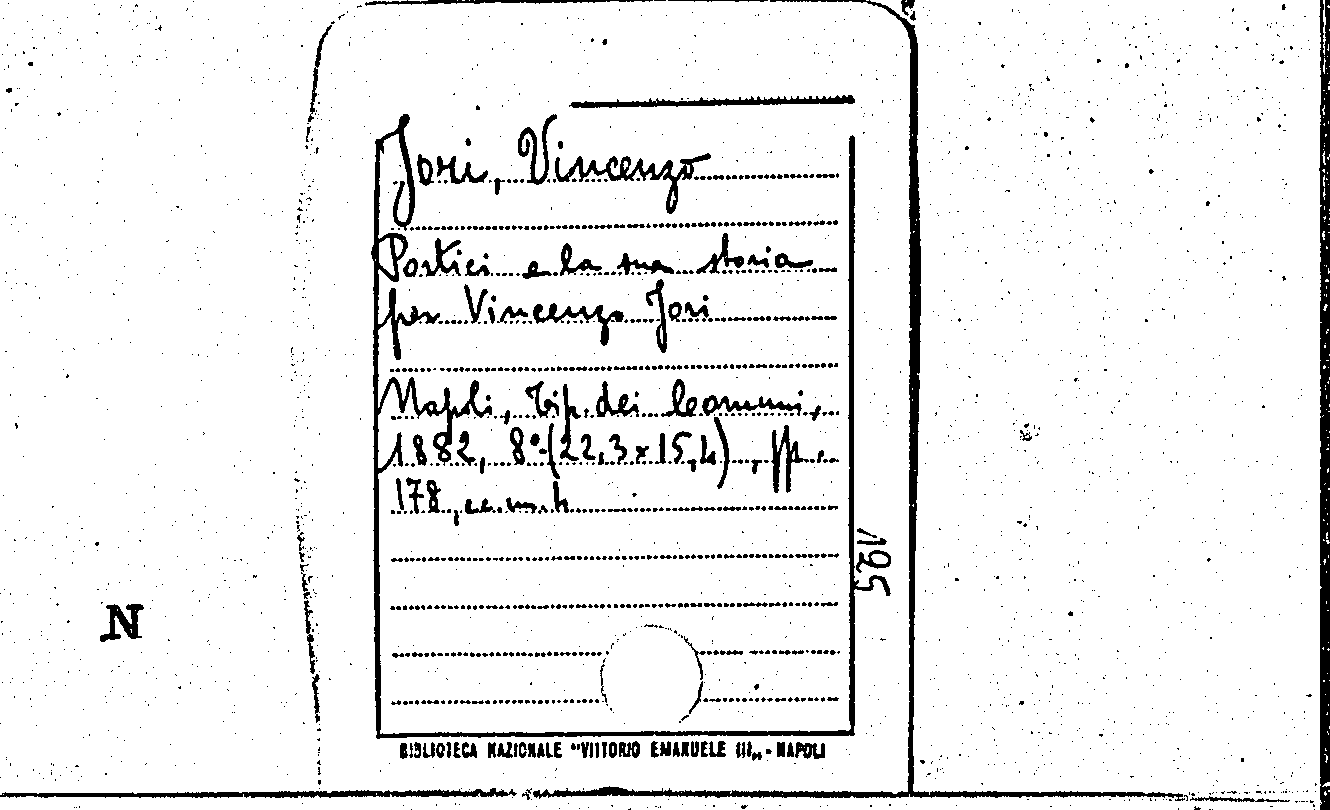 Jori, Vincenzo
Portici e la sua storia
per Vincenzo Jori
Napoli, Tip. dei Comuni,
1882, 8° (22,3 x 15,4), pp.
178, cc.
195
N
BIBLIOTECA NAZIONALE "VITTORIO EMANUELE III„ - NAPOLI